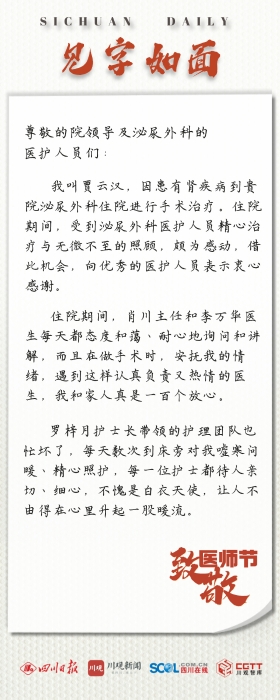 SICHUAN DAILY
见字如面
尊敬的院领导及泌尿外科的
医护人员们：
我叫贾云汉，因患有肾疾病到贵
院泌尿外科住院进行手术治疗。住院
期间，受到泌尿外科医护人员精心治
疗与无微不至的照顾，颇为感动，借
此机会，向优秀的医护人员表示衷心
感谢。
住院期间，肖川主任和李万华医
生每天都态度和蔼、耐心地询问和讲
解，而且在做手术时，安抚我的情
绪，遇到这样认真负责又热情的医
生，我和家人真是一百个放心。
罗梓月护士长带领的护理团队也
忙坏了，每天数次到床旁对我嘘寒问
暖、精心照护，每一位护士都待人亲
切、细心，不愧是白衣天使，让人不
由得在心里升起一股暖流。
致敬
医师节
四川日报
川观
川观新闻
SCOL.COM.CN
四川在线
CGTT
川观智库